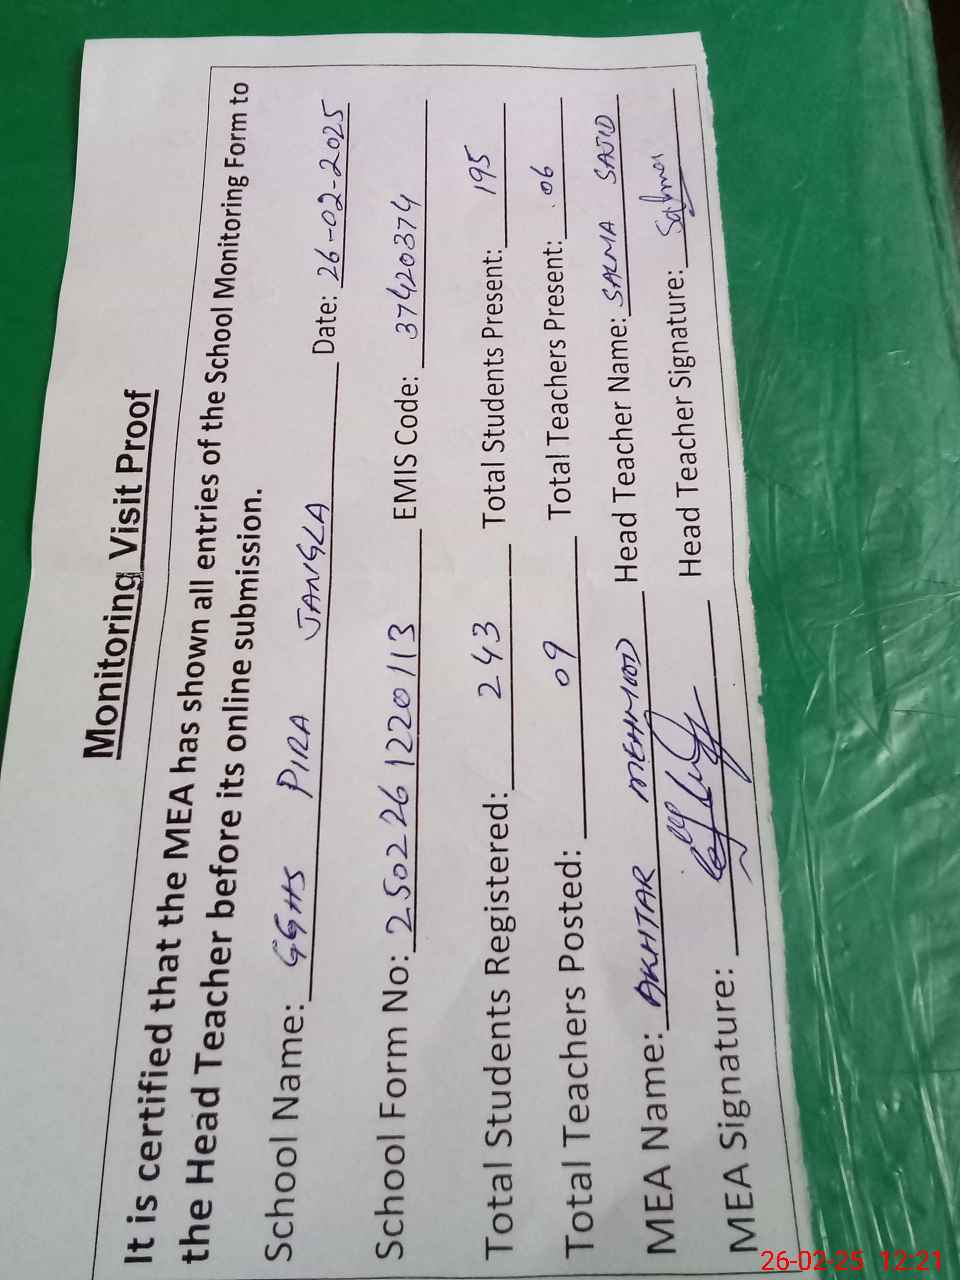 Monitoring Visit Proof
It is certified that the MEA has shown all entries of the School Monitoring Form to
the Head Teacher before its online submission.
School Name: GGHS PIRA JANGLA Date: 26-02-2025
School Form No: 2502261220113 EMIS Code: 37420374
Total Students Registered: 243 Total Students Present: 195
Total Teachers Posted: 09 Total Teachers Present: 06
MEA Name: AKHTAR MEHMOOD Head Teacher Name: SALMA SAJID
MEA Signature: Head Teacher Signature: Salma
26-02-25 12:21